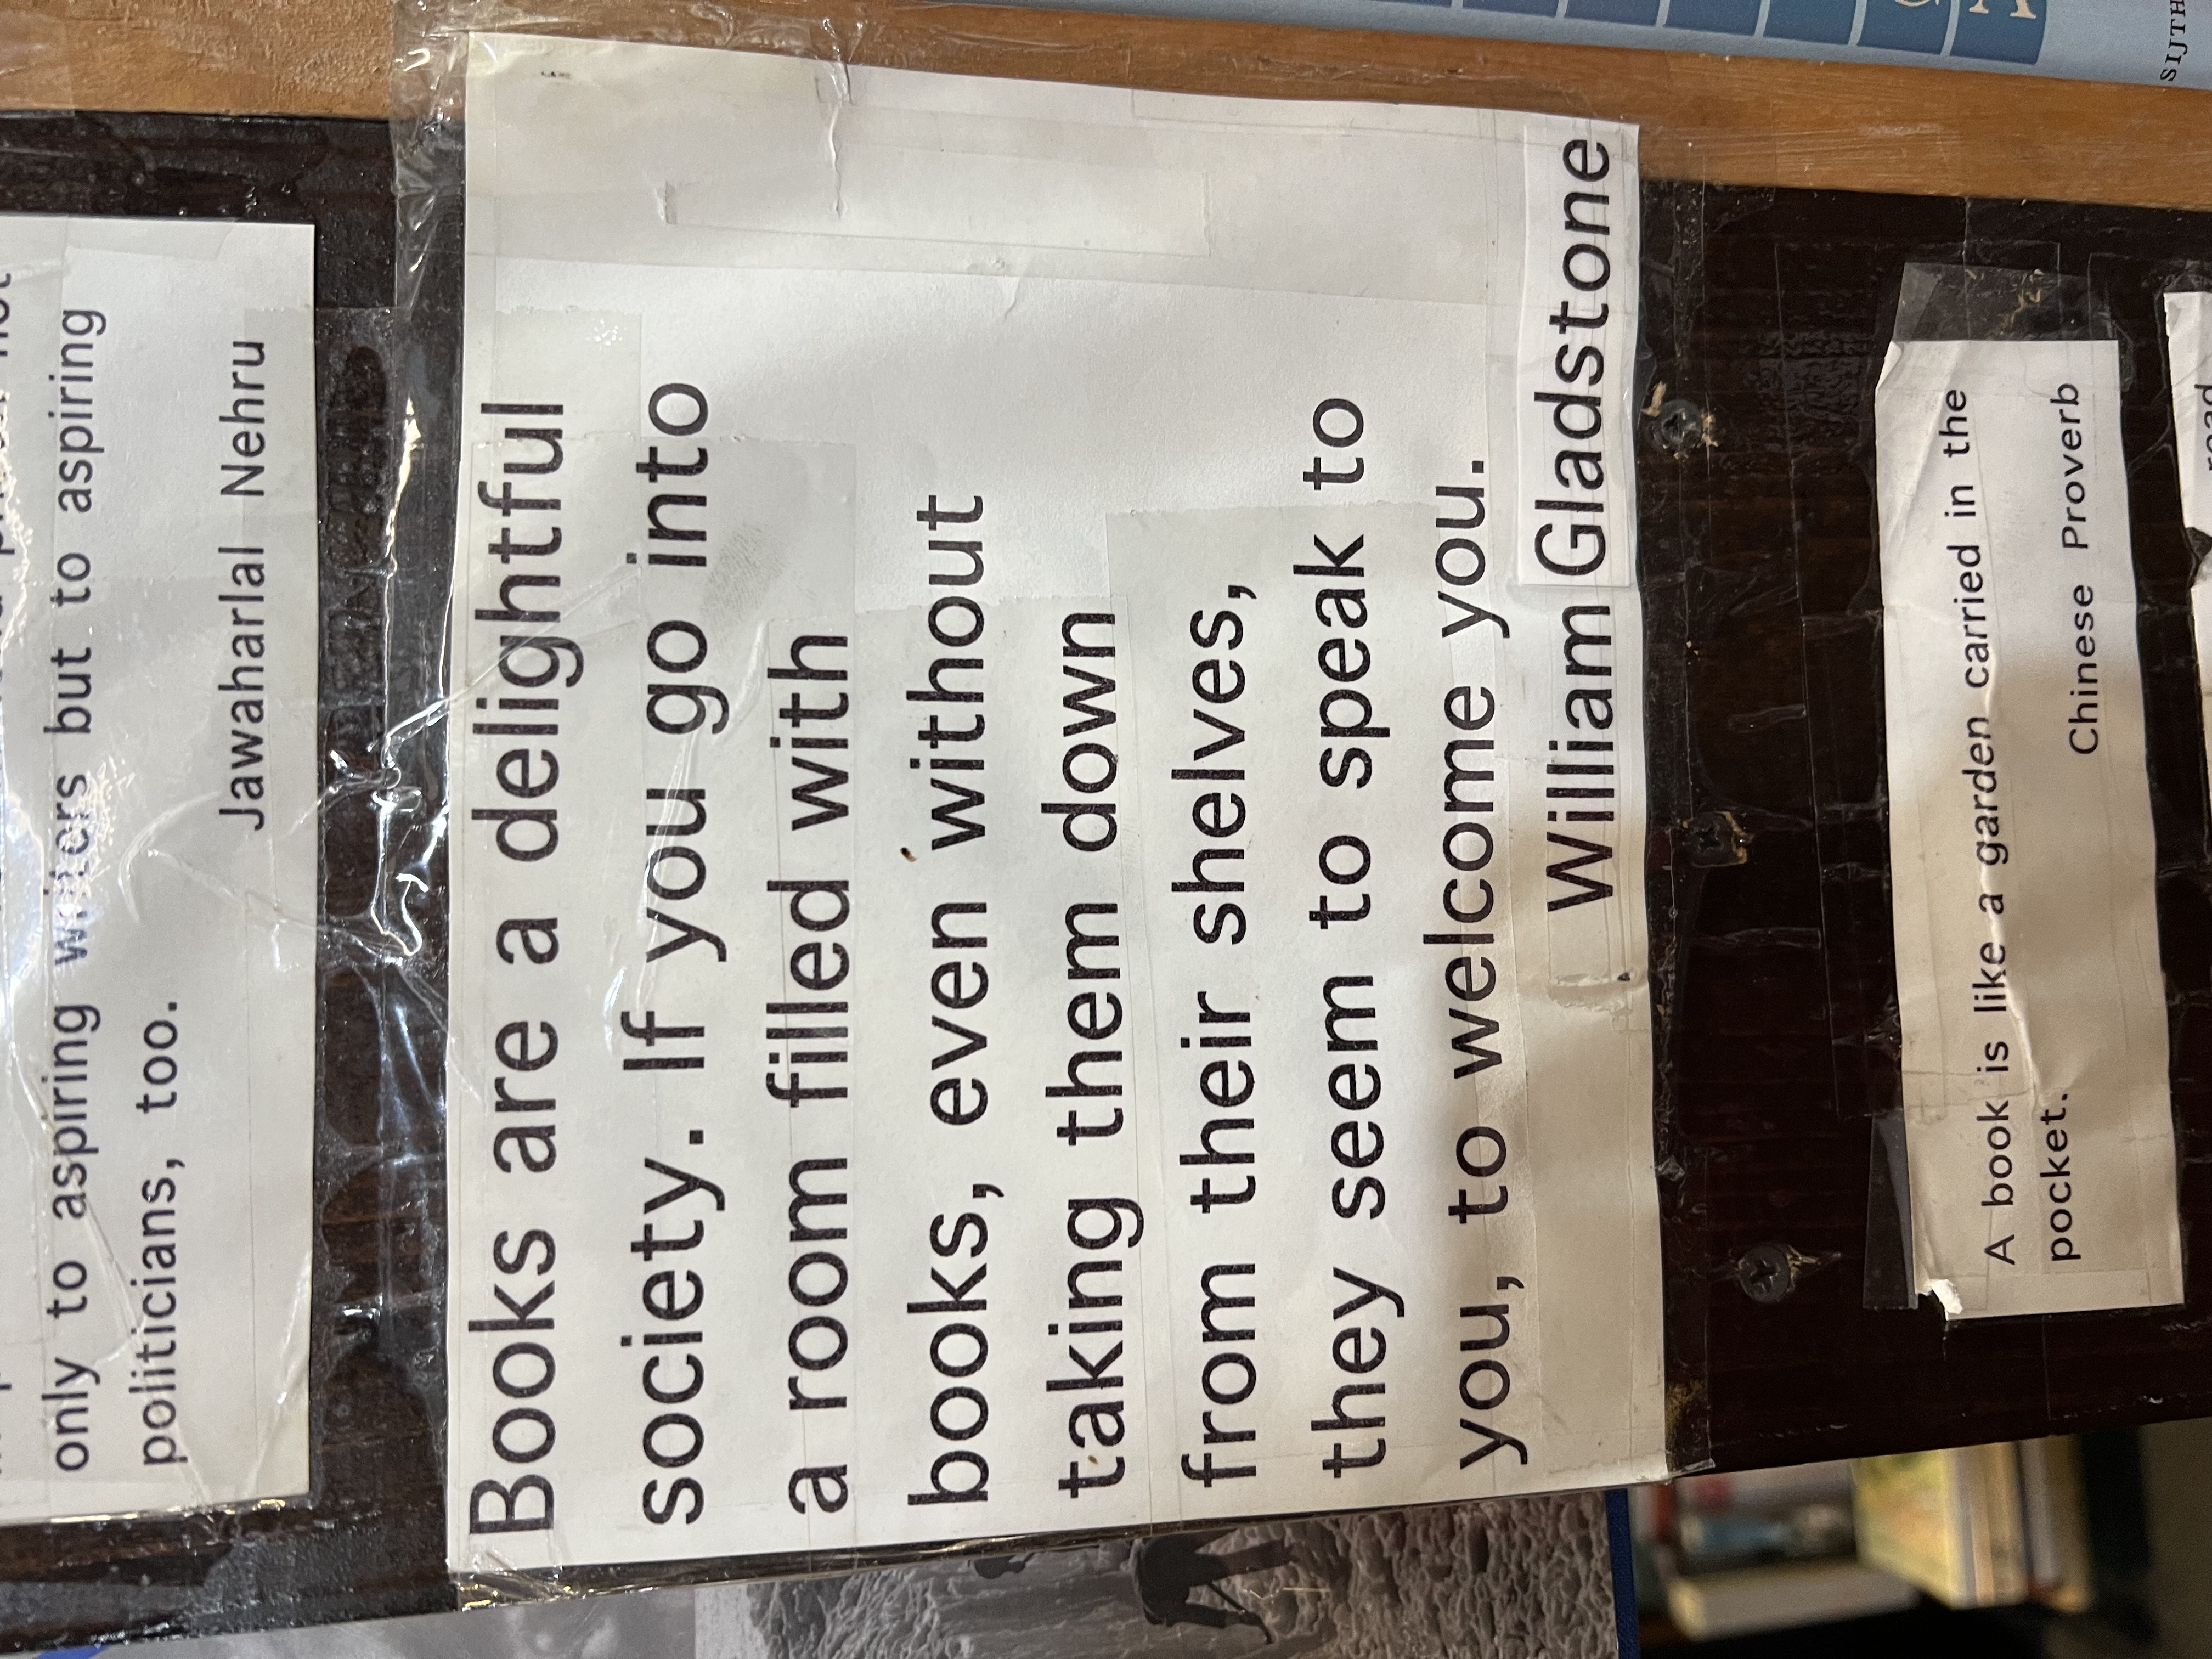 only to aspiring writers but to aspiring
politicians, too.
Jawaharlal Nehru
Books are a delightful
society. If you go into
a room filled with
books, even without
taking them down
from their shelves,
they seem to speak to
you, to welcome you.
William Gladstone
A book is like a garden carried in the
pocket.
Chinese Proverb
read
SIJTH